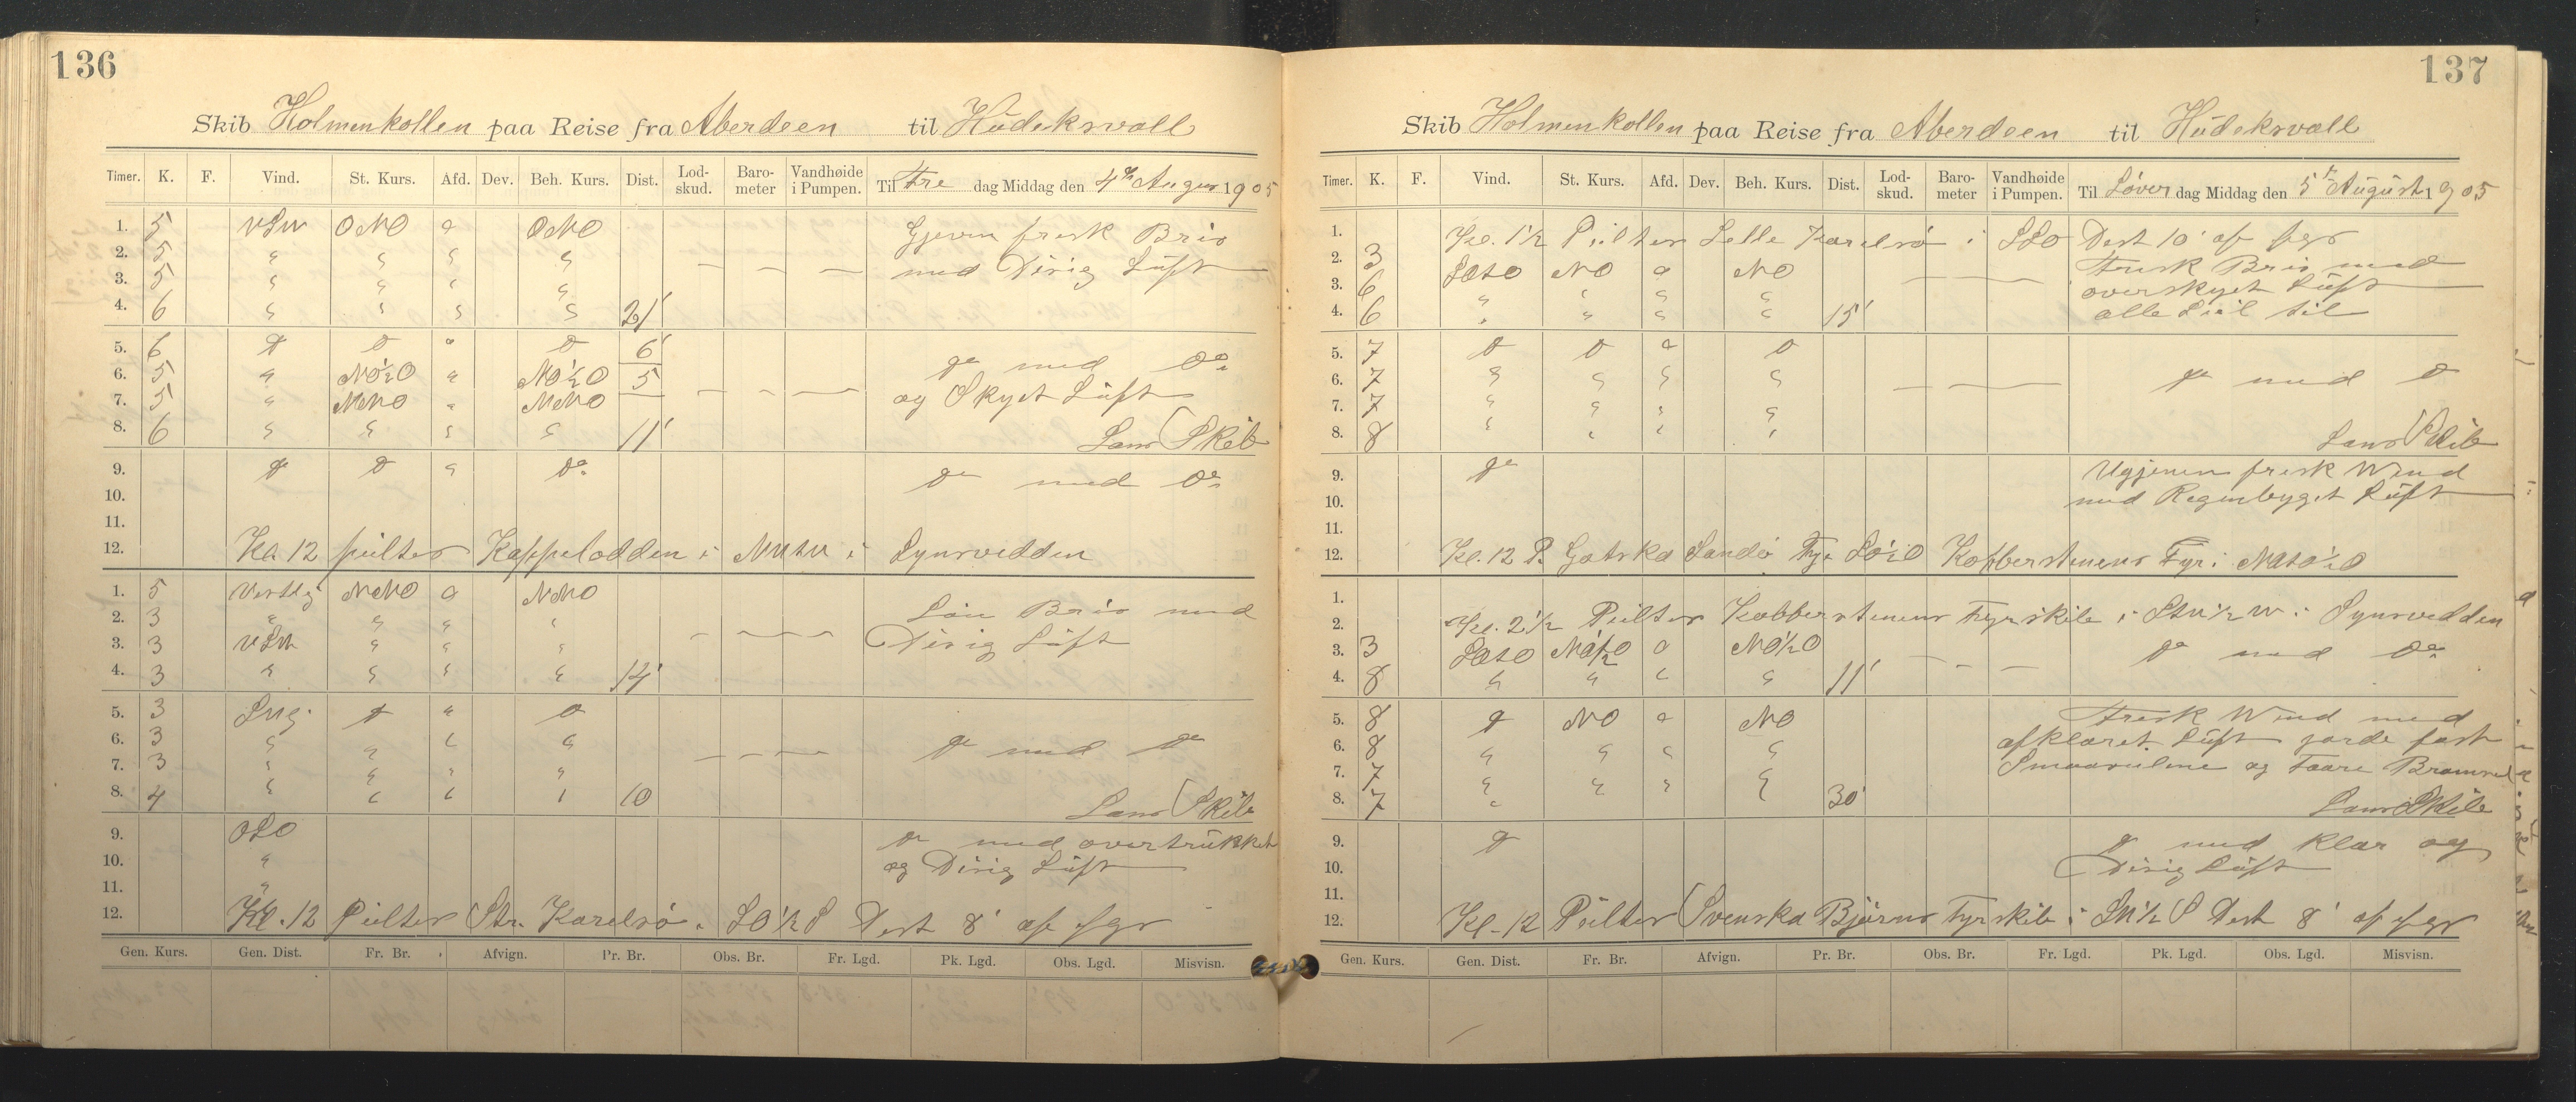 136
Skib Holmenkollen paa Reise fra Aberdeen til Hudeksvall
Timer. K. F. Vind. St. Kurs. Afd. Dev. Beh. Kurs. Dist. Lod-skud. Baro-meter Vandhøide i Pumpen. Til Fre dag Middag den 4de August 1905
1. 5 VSW ONO a ONO Gjevn frisk Bris
2. 5 " " " " — — — med Disig Luft
3. 5 " " " "
4. 6 " " " " 21'
5. 6 do do " do 6'
6. 5 " NO½O " NO½O 5 do med do
7. 5 " NNO " NNO — — — og Skyet Luft
8. 6 " " " " 11' Lans Skib
9. do do " do do med do
10.
11.
12. Kl 12 peilter Kappelodden i i Synsvidden
1. 5 Vestlig NNO a NNO Lau Bris med
2. 3 " " " " — — — Disig Luft
3. 3 VSW " " "
4. 3 " " " " 14'
5. 3 do " do
6. 3 " " " " — — — do med do
7. 3 " " " "
8. 4 " " " " 10 Lans Skib
9. OSO do med overtrukket
10. " og Disig Luft
11. "
12. Kl. 12 Peilter Str. Karelsö i SO½S Dist 8' af sgr
Gen. Kurs. Gen. Dist. Fr. Br. Afvign. Pr. Br. Obs. Br. Fr. Lgd. Pk. Lgd. Obs. Lgd. Misvisn.
137
Skib Holmenkollen paa Reise fra Aberdeen til Hudeksvall
Timer. K. F. Vind. St. Kurs. Afd. Dev. Beh. Kurs. Dist. Lod-skud. Baro-meter Vandhøide i Pumpen. Til Löver dag Middag den 5te August 1905
1. Kl. 1½ Peilter Lelle Karelsö i SSO Dist 10' af sgr
2. 3 SOTO NO a NO Frisk Bris med
3. 6 " " " " — — overskyet Luft
4. 6 " " " " 15' alle Seil til
5. 7 do do a do
6. 7 " " " " — — do med do
7. 7 " " " "
8. 8 " " " " Lans Skib
9. do Ugjevn frisk Wind
10. med Regnbyget Luft
11.
12. Kl. 12 P. Gotska Sandö Fyr SO½O Kopperstenens Fyr i
1.
2. Kl. 2½ Peilter Kobberstenens Fyrskib i i Synsvidden
3. 3 SOTO NO½O a NO½O do med do
4. 8 " " " " 11' — — —
5. 8 do NO a NO Frisk Wind med
6. 8 " " " " afklaret Luft gjorde fast
7. 7 " " " " og Faare
8. 7 " " " " 30' Lans Skib
9. do do med klar og
10. Disig Luft
11.
12. Kl. 12 Peilter Svenska Björns Fyrskib i SW½S Dist 8' af sgr
Gen. Kurs. Gen. Dist. Fr. Br. Afvign. Pr. Br. Obs. Br. Fr. Lgd. Pk. Lgd. Obs. Lgd. Misvisn.